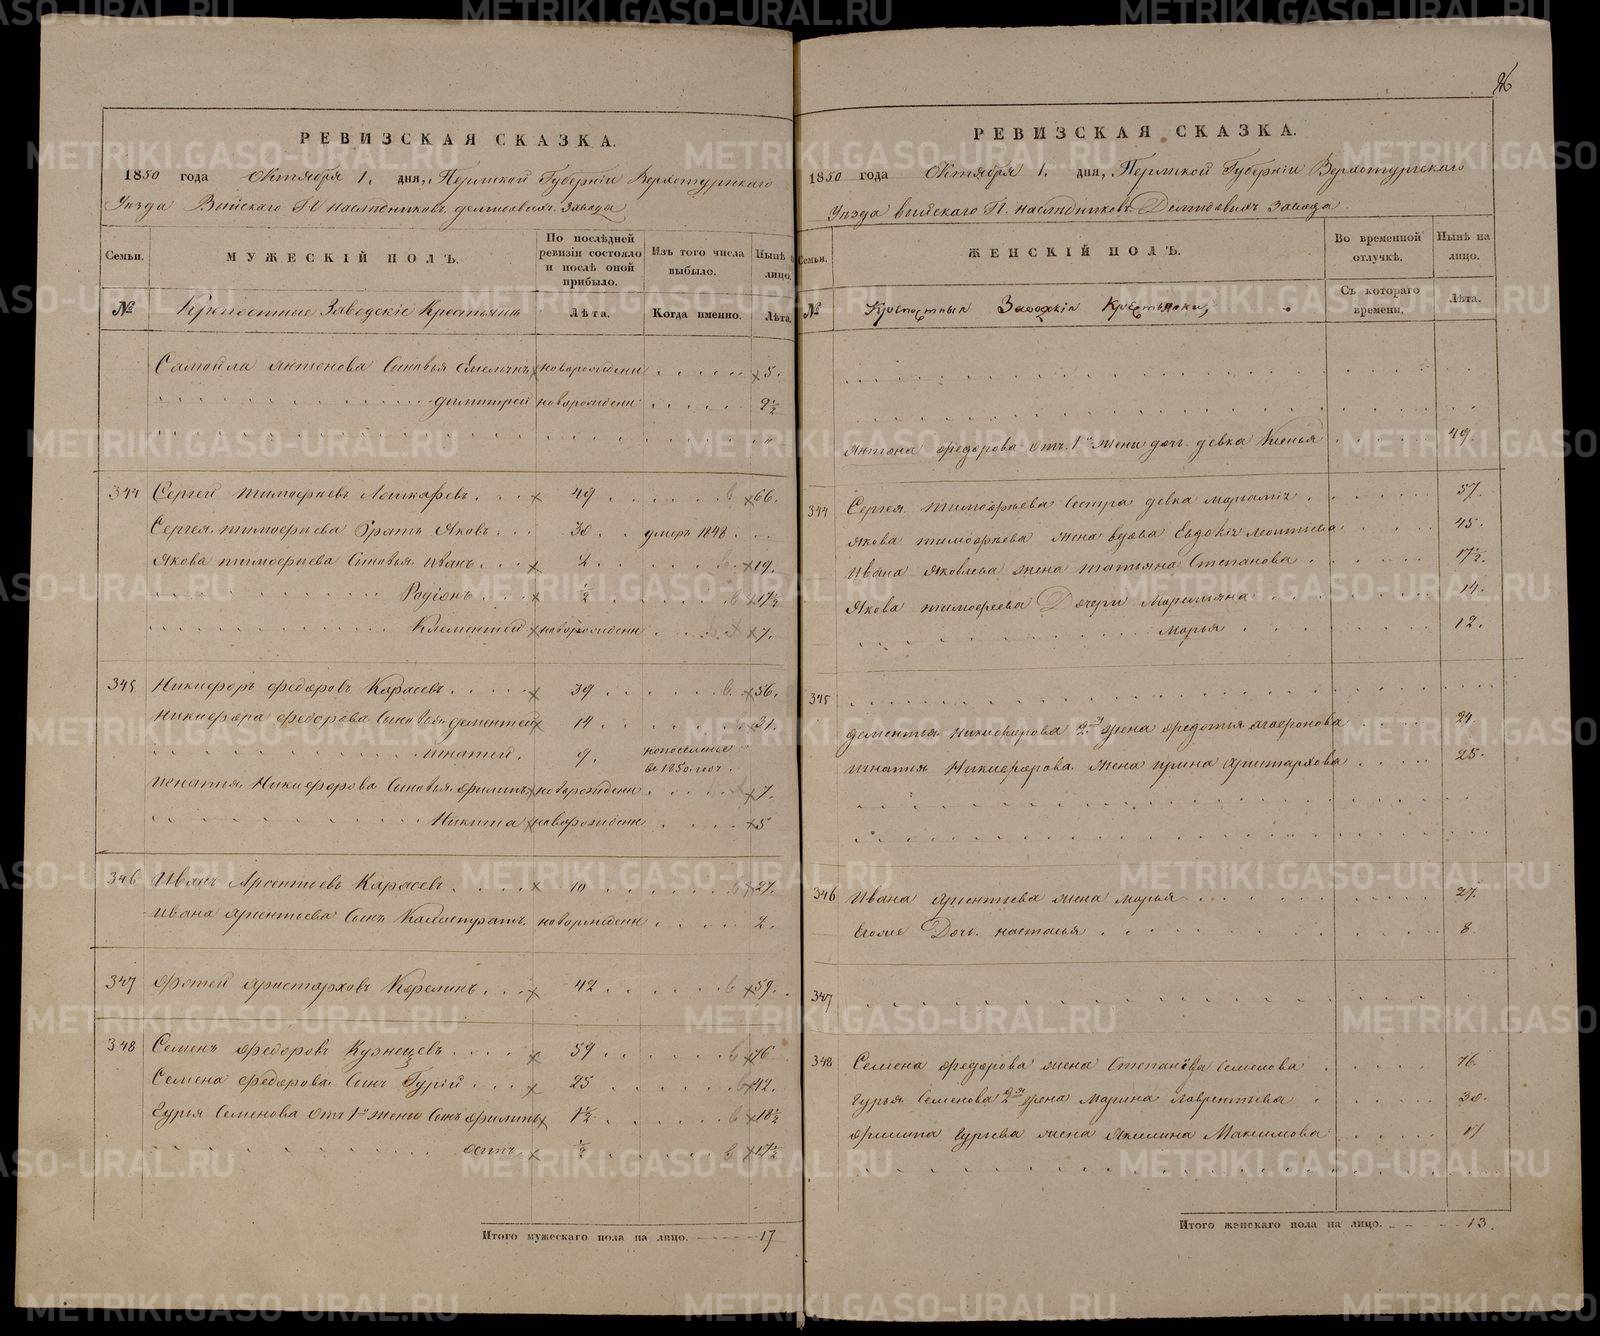 26
РЕВИЗСКАЯ СКАЗКА.
1850 года Октября 1. дня, Пермской Губернiи Верхотурскаго
Уѣзда Выйскаго Гг. наслѣдниковъ Демидовыхъ Завода
Семьи. МУЖЕСКIЙ ПОЛЪ. По послѣдней ревизiи состояло и послѣ оной прибыло. Изъ того числа выбыло. Нынѣ на лицо.
№ Крѣпостные Заводскiе Крестьяне Лѣта. Когда именно. Лѣта.
Самойла Антонова Сыновья новорожденн 5.
Димитрей новорожденн 2½
344 Сергей Тимофеевъ 49 66.
Сергея Тимофеева братъ Яковъ 30 умеръ 1848
Якова Тимофеева Сыновья Иванъ 2 19.
Родiонъ ½ 17½
Клементей новорожденн 7.
345 Никифоръ Федоровъ Карасевъ 39 56.
Никифора Федорова Сыновья Дементей 14 31.
Игнатей. 9. на поселенье
въ 1850 году
Игнатья Никифорова Сыновья Филипъ новорожденн 7.
Никита новорожденн 5
346 Иванъ Арсентьевъ Карасевъ 10 27.
Ивана Арсентьева Сынъ Калистратъ новорожденн 2.
347 Фотей Аристарховъ Корелинъ 42 59.
348 Семенъ Федоровъ Кузнецевъ 59 76
Семена Федорова Сынъ Гурiй 25 42.
Гурья Семенова отъ 1й жены Сынъ Филипъ 1½ 18½
Осипъ ½ 17½
Итого мужескаго пола на лицо. 17
РЕВИЗСКАЯ СКАЗКА.
1850 года Октября 1. дня, Пермской Губернiи Верхотурскаго
Уѣзда Выйскаго Гг. наслѣдниковъ Демидовыхъ Завода
Семьи. ЖЕНСКIЙ ПОЛЪ. Во временной отлучкѣ. Нынѣ на лицо.
№ Крѣпостныя Заводскiя Крестьянки, Съ котораго времени. Лѣта.
Антона Федорова отъ 1й жены дочь девка 49.
344 Сергея Тимофеева Сестра девка 57.
Якова Тимофеева жена вдова Евдокiя Леонтьева 45.
Ивана Яковлева жена Татьяна Степанова 17½.
Якова Тимофеева Дочери Маримьяна 14.
Марья 12.
345
Дементья Никифорова 2я жена Федотья Агафонова 24.
Игнатья Никифорова жена Ирина Аристархова 25.
346 Ивана Арсентьева жена Марья 27.
Ихже Дочь Настасья 8
347
348 Семена Федорова жена Степанида Семенова 76
Гурья Семенова 2я жена Марина Лаврентьева 30.
Филипа Гурьева жена Акилина Максимова 17
Итого женскаго пола на лицо. 13.
METRIKI.GASO-URAL.RU